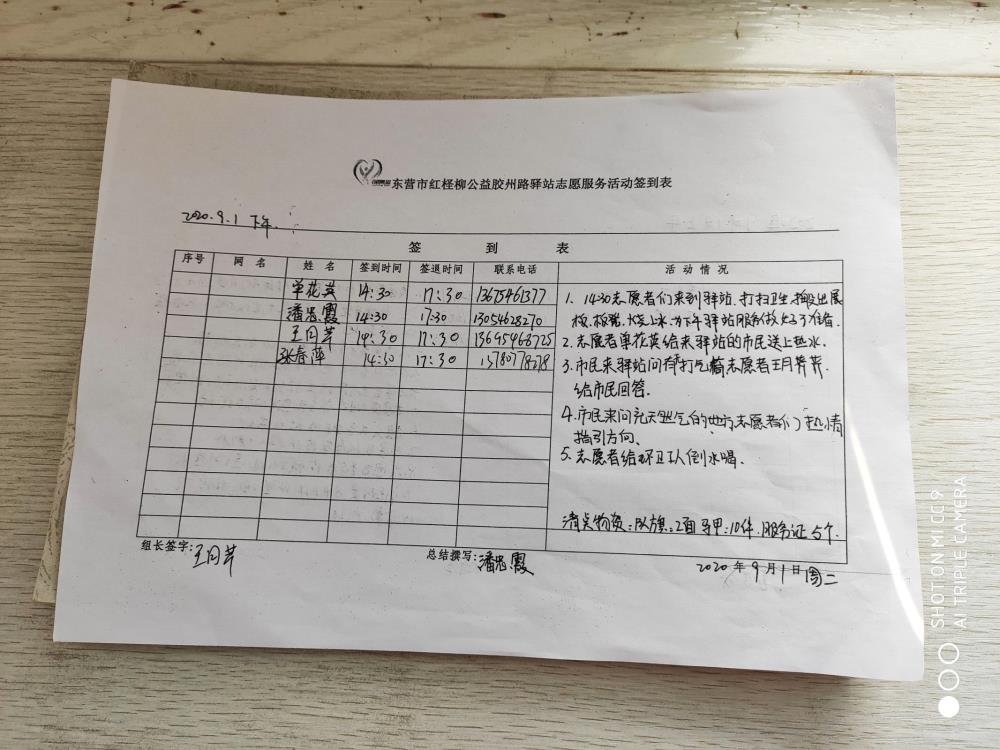 东营市红柽柳公益胶州路驿站志愿服务活动签到表
2020.9.1 下午
签 到 表
序号 网 名 姓 名 签到时间 签退时间 联系电话 活 动 情 况
单花英 14:30 17:30 13675461377
潘忠霞 14:30 17:30 13054628270
王月芹 14:30 17:30 13695468725
张春萍 14:30 17:30 13780778278
1. 14:30志愿者们来到驿站.打扫卫生.搬出展
板.板凳.烧上水.为下午驿站服务做好了准备.
2.志愿者单花英给来驿站的市民送上热水.
3.市民来驿站问有打气筒志愿者王月芹
给市民回答.
4.市民来问充天然气的地方志愿者们热情
指引方向.
5.志愿者给环卫工人倒水喝.
清点物资:队旗:2面 马甲:10件.服务证5个.
组长签字:王月芹 总结撰写:潘忠霞 2020年9月1日周二
SHOT ON MI CC9
AI TRIPLE CAMERA